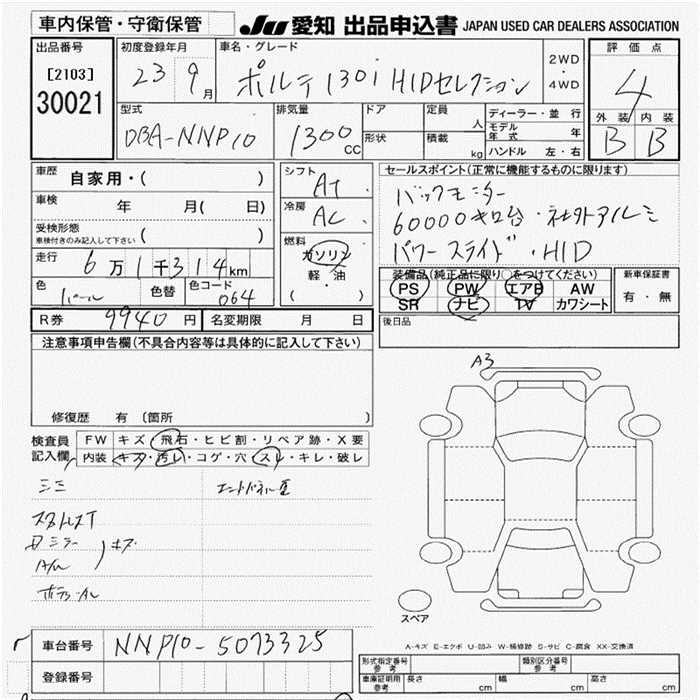 車内保管・守衛保管
JU 愛知 出品申込書 JAPAN USED CAR DEALERS ASSOCIATION
出品番号
[2103]
30021
初度登録年月
23 9月
車名・グレード
ポルテ 130i HIDセレクション
2WD
・
4WD
評価点
4
外装 内装
B B
型式
DBA-NNP10
排気量
1300 CC
ドア
形状
定員
人
積載
kg
ディーラー・並行
モデル年式 年
ハンドル 左・右
車歴
自家用・( )
車検
年 月( 日)
受検形態
車検付きのみ記入して下さい ( )
走行
6万1千314km
色
パール
色替
色コード
064
シフト
AT
冷房
AC
燃料
ガソリン
軽・油
( )
セールスポイント(正常に機能するものに限ります)
バックモニター
60000キロ台・社外アルミ
パワースライド・HID
装備品(純正品に限り○をつけてください)
PS PW エアB AW
SR ナビ TV カワシート
新車保証書
有・無
後日品
R券 9940円
名変期限 月 日
注意事項申告欄(不具合内容等は具体的に記入して下さい)
修復歴 有 〔箇所 〕
検査員
記入欄
FW キズ・飛石・ヒビ割・リペア跡・X要
内装 キズ・汚レ・コゲ・穴・スレ・キレ・破レ
A3
スペア
A-キズ E-エクボ U-凹み W-補修跡 S-サビ C-腐食 XX-交換済
車台番号
NNP10-5073325
登録番号
形式指定番号
参考
類別区分番号
参考
車庫証明用
参考
長さ cm
幅 cm
高さ cm